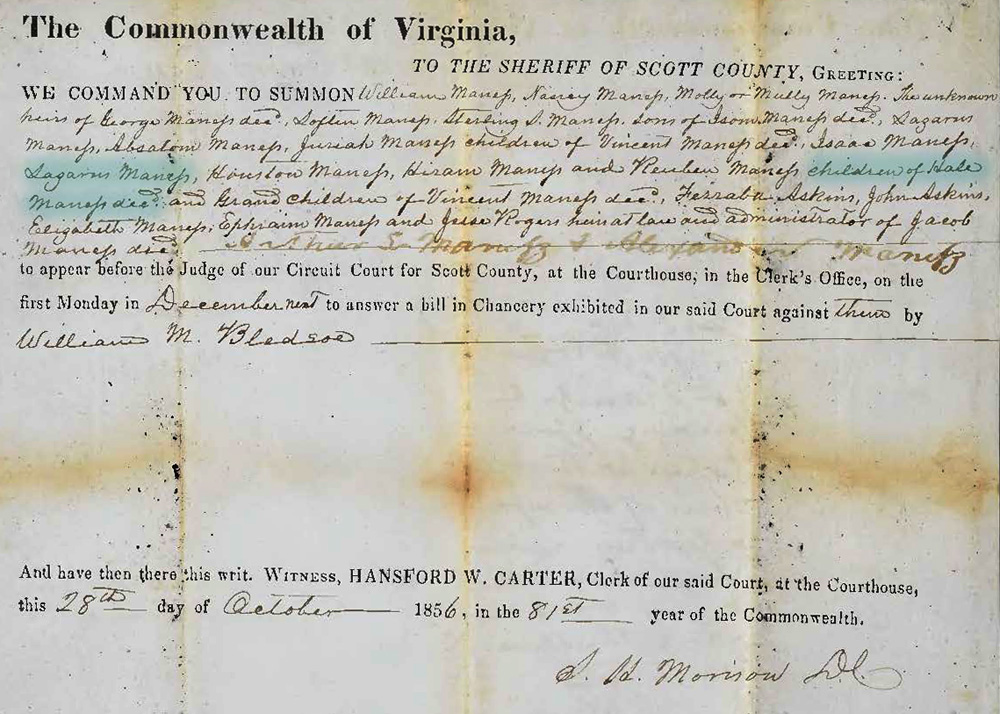 The Commonwealth of Virginia,
TO THE SHERIFF OF SCOTT COUNTY, GREETING:
WE COMMAND YOU TO SUMMON William Maness, Nancy Maness, Molly or Mully Maness. The unknown
heirs of George Maness decd., Loftin Maness, Sterling S. Maness. sons of Isom Maness decd., Lazarus
Maness, Absalom Maness, Josiah Maness children of Vincent Maness decd., Isaac Maness,
Lazarus Maness, Houston Maness, Hiram Maness and Reuben Maness children of Hale
Maness decd. and Grand children of Vincent Maness decd., Askins, John Askins,
Elizabeth Maness, Ephraim Maness and Jesse Rogers heirs at law and administrator of Jacob
Maness decd. Arthur S. Maness & Maness
to appear before the Judge of our Circuit Court for Scott County, at the Courthouse, in the Clerk's Office, on the
first Monday in December next to answer a bill in Chancery exhibited in our said Court against them by
William M. Bledsoe
And have then there this writ. WITNESS, HANSFORD W. CARTER, Clerk of our said Court, at the Courthouse,
this 28th day of October 1856, in the 81st year of the Commonwealth.
S. H. Morison D.C.